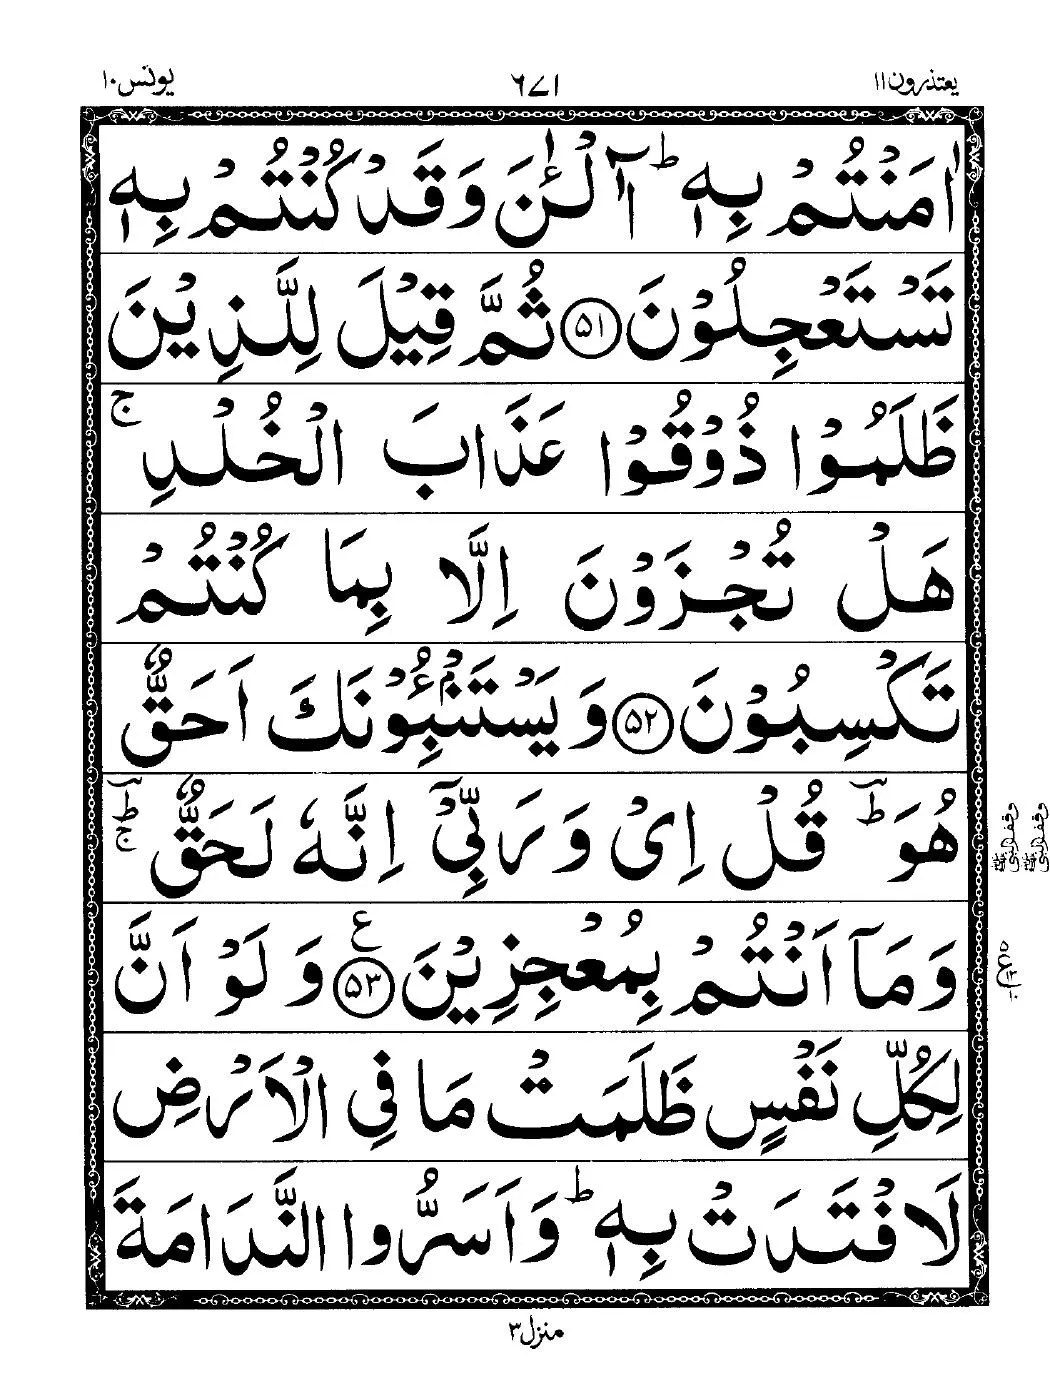 یعتذرون ۱۱
٦٧١
یونس ۱۰
اٰمَنۡتُمۡ بِهٖ ؕ آٰلۡـٰٔنَ وَقَدۡ كُنۡتُمۡ بِهٖ
تَسۡتَعۡجِلُوۡنَ ﴿۵۱﴾ ثُمَّ قِيۡلَ لِلَّذِيۡنَ
ظَلَمُوۡا ذُوۡقُوۡا عَذَابَ الۡخُـلۡدِ ۚ
هَلۡ تُجۡزَوۡنَ اِلَّا بِمَا كُنۡتُمۡ
تَكۡسِبُوۡنَ ﴿۵۲﴾ وَيَسۡتَنۡۢبِـُٔوۡنَكَ اَحَقٌّ
هُوَ ؕؔ قُلۡ اِىۡ وَرَبِّىۡۤ اِنَّهٗ لَحَقٌّ ؔؕۚ
وَمَاۤ اَنۡتُمۡ بِمُعۡجِزِيۡنَ ﴿۵۳﴾ ع وَلَوۡ اَنَّ
لِكُلِّ نَفۡسٍ ظَلَمَتۡ مَا فِى الۡاَرۡضِ
لَافۡتَدَتۡ بِهٖ ؕ وَاَسَرُّوا النَّدَامَةَ
وقف النبی ﷺ
وقف النبی ﷺ
منزل ۳